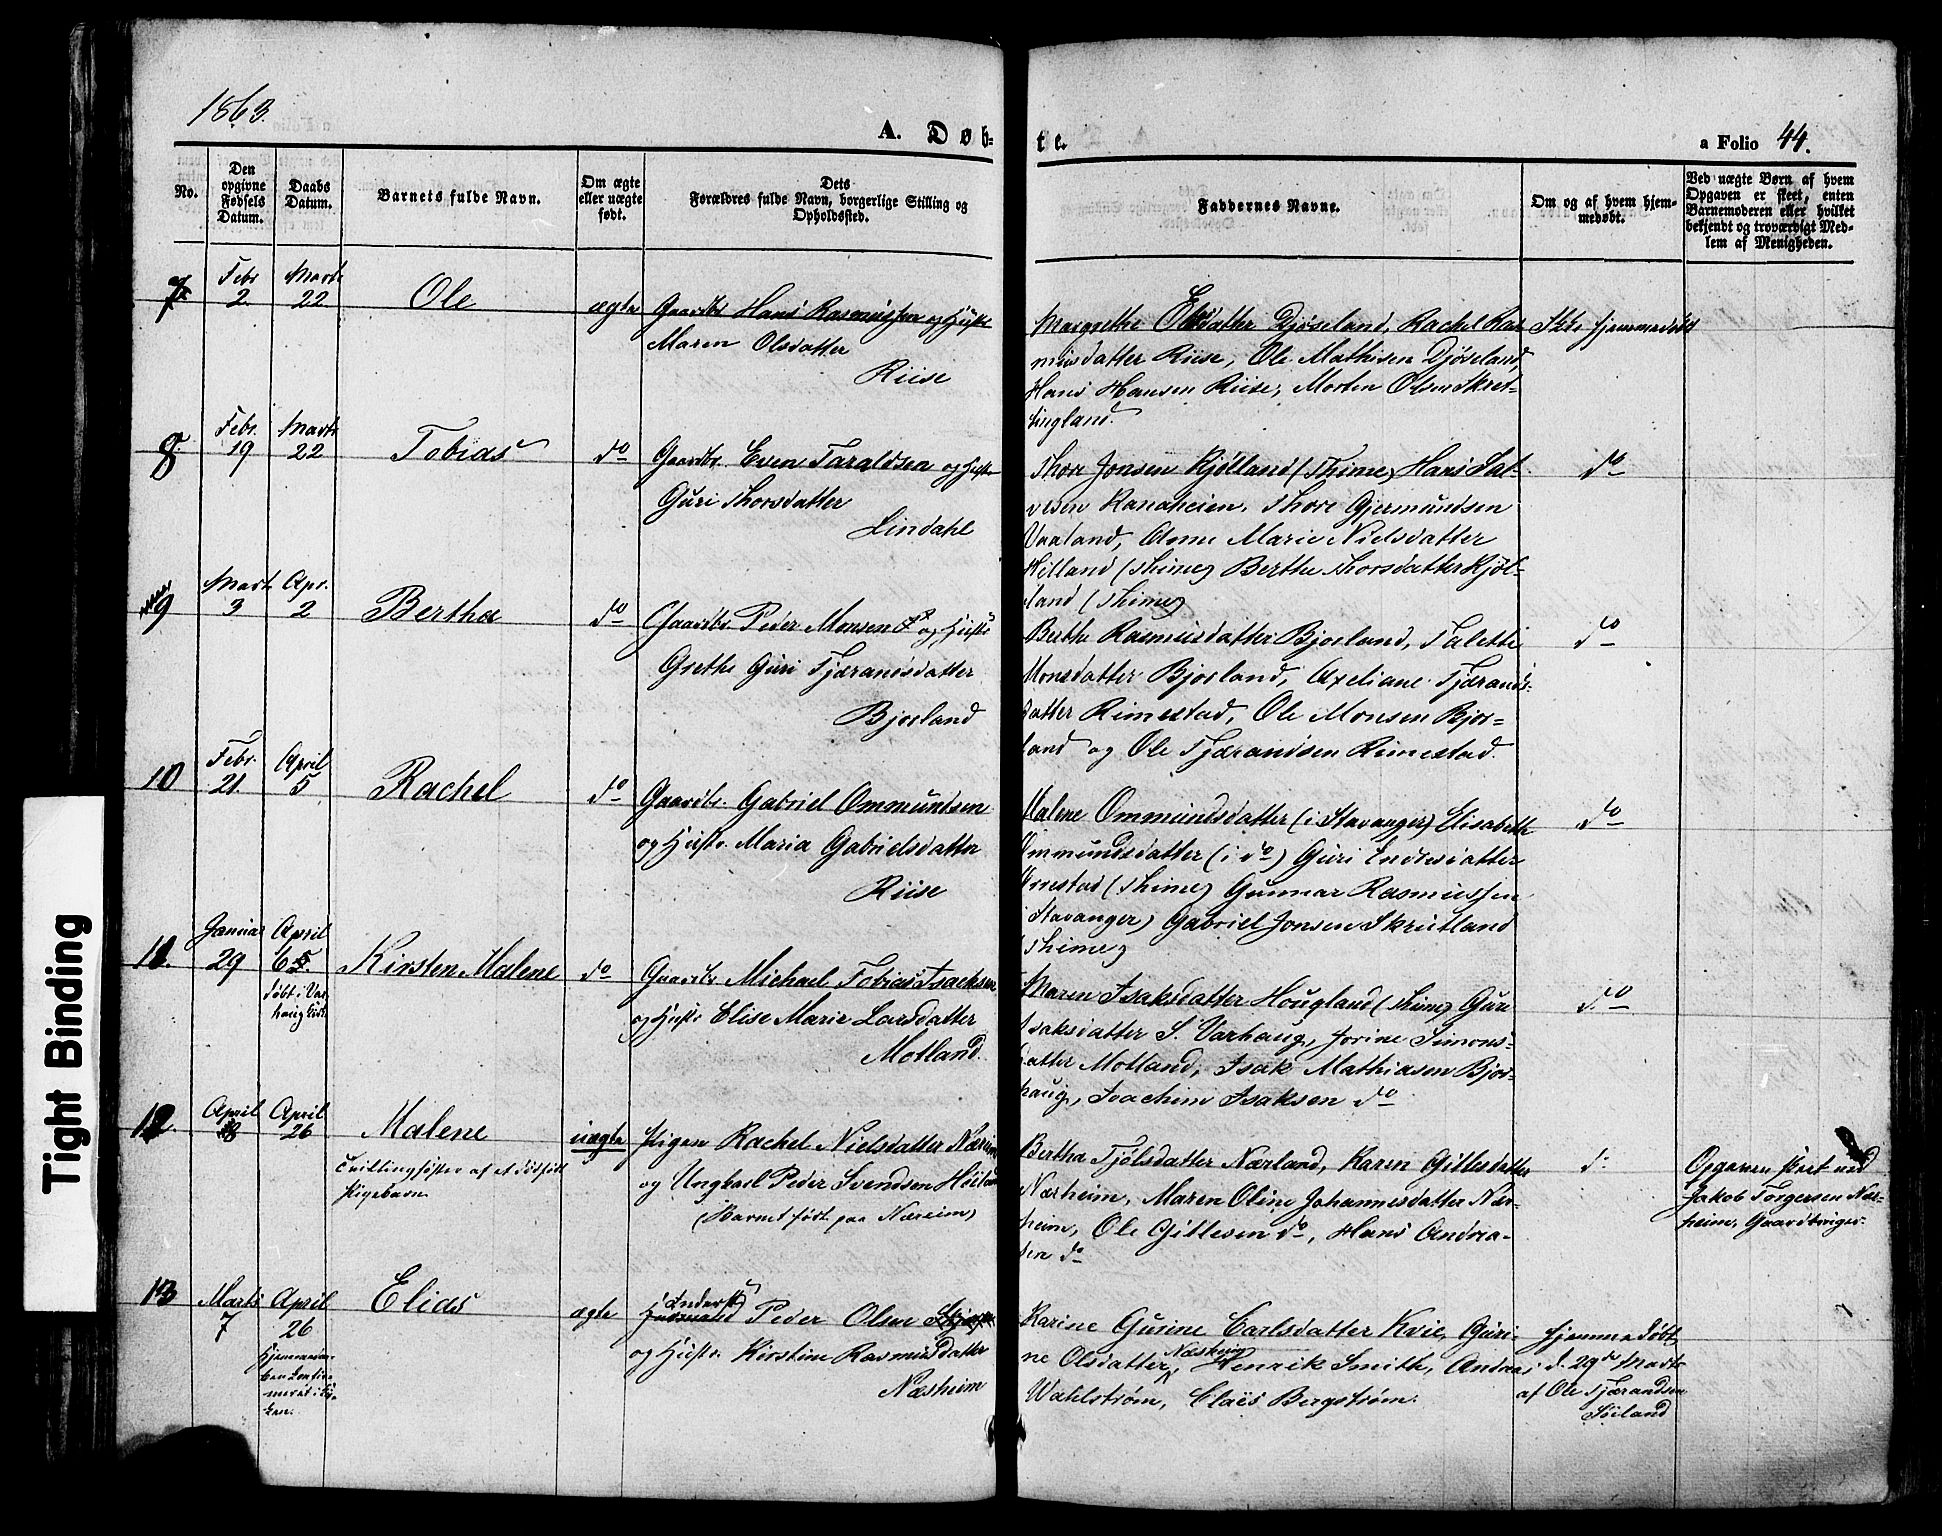 1863.
A. Døb=
te.
a Folio 44.
No.
Den
opgivne
Fødsels
Datum.
Daabs
Datum.
Barnets fulde Navn.
Om ægte
eller uægte
født.
Dets
Forældres fulde Navn, borgerlige Stilling og
Opholdssted.
Faddernes Navne.
Om og af hvem hjem=
medøbt.
Ved uægte Børn af hvem
Opgaven er skeet, enten
Barnemoderen eller hvilket
bekjendt og troværdigt Med=
lem af Menigheden.
7
Febr
2
Marts
22
Ole
ægte
Gaardbr. Hans Rasmussen og Hustr.
Maren Olsdatter
Riise
Margrethe Elsdatter Djøseland, Rachel Ras
musdatter Riise, Ole Mathisen Djøseland,
Hans Hansen Riise, Morten Olsen Skret-
tingland.
Ikke hjemmedøbt
8
Febr.
19
Marts
22
Tobias
do
Gaardbr. Even Taraldsen og Hustr
Guri Thorsdatter
Lindahl
Thor Jonsen Kjølland (Thime) Hans Sal-
vesen Ranaheien, Thore Gjermundsen
Vaaland, Anne Marie Nielsdatter
Hilland (Thime) Berthe Thorsdatter Kjøl-
land (Thime)
do
9
Mart.
3
Apr.
2
Bertha
do
Gaardbr. Peder Monsen og Hustr
Grethe Guri Tjærandsdatter
Bjorland
Berthe Rasmusdatter Bjorland, Taletti
Monsdatter Bjorland, Axeliane Tjærands-
datter Rimestad, Ole Monsen Bjor-
land og Ole Tjærandsen Rimestad.
do
10
Febr.
21
April
5
Rachel
do
Gaardbr. Gabriel Ommundsen
og Hustr. Maria Gabrielsdatter
Riise
Malene Ommundsdatter (i Stavanger) Elisabeth
Ommundsdatter (i do) Guri Endresdatter
(Thime) Gunnar Rasmussen
Stavanger) Gabriel Jonsen Skrutland
Thime)
do
11.
Januar
29
April
5.
døbt i Var
haug Kirke
Kirsten Malene
do
Gaardbr Michael Tobias Isacksen
og Hustr Elise Marie Larsdatter
Motland.
Maren Isaksdatter Hougland (Thime) Guri
Isaksdatter S. Varhaug, Jorine Simons-
datter Motland, Isak Mathiasen Bjor-
haug, Joachim Isaksen do
do
12.
April
18
April
26
Malene
Tvillingsøster af et dødfødt
Pigebarn
uægte
Pigen Rachel Nielsdatter Næreim
og Ungkarl Peder Svendsen Høiland
(Barnet født paa Næreim)
Bertha Tjølsdatter Nærland, Karen Gillesdatter
Nærheim, Maren Oline Johannesdatter Nær-
heim, Ole Gillesen do, Hans Andrea-
sen do
do
Opgaven skeet ved
Jakob Torgersen Nær-
heim, Gaardbruger.
13
Marts
7
April
26
Hjemmedaa-
ben confir-
meret i Kir-
ken.
Elias
ægte
Inderst
Huusmand Peder Olsen
og Hustr. Kirstine Rasmusdatter
Næsheim
Karine Gurine Carlsdatter Kvie, Guri-
ne Olsdatter Næsheim, Henrik Smith, Andreas
Wahlstrøm, Claës Bergstrøm.
Hjemmedøbt
d. 29de Marts
af Ole Tjærandsen
Söiland
Tight Binding